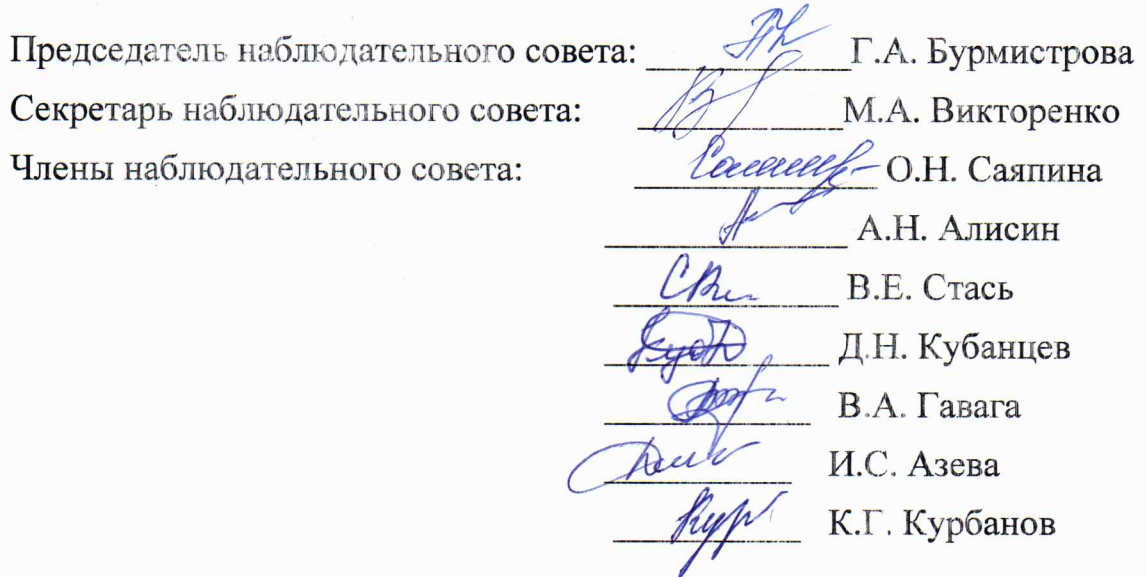 Председатель наблюдательного совета: Г.А. Бурмистрова
Секретарь наблюдательного совета: М.А. Викторенко
Члены наблюдательного совета: О.Н. Саяпина
А.Н. Алисин
В.Е. Стась
Д.Н. Кубанцев
В.А. Гавага
И.С. Азева
К.Г. Курбанов